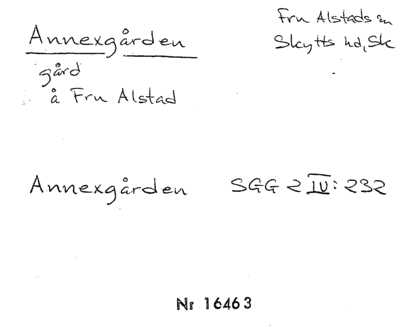 Annexgården
Fru Alstads sn
Skytts hd, Sk
gård
å Fru Alstad
Annexgården SGG 2 IV: 232
Nr 16463